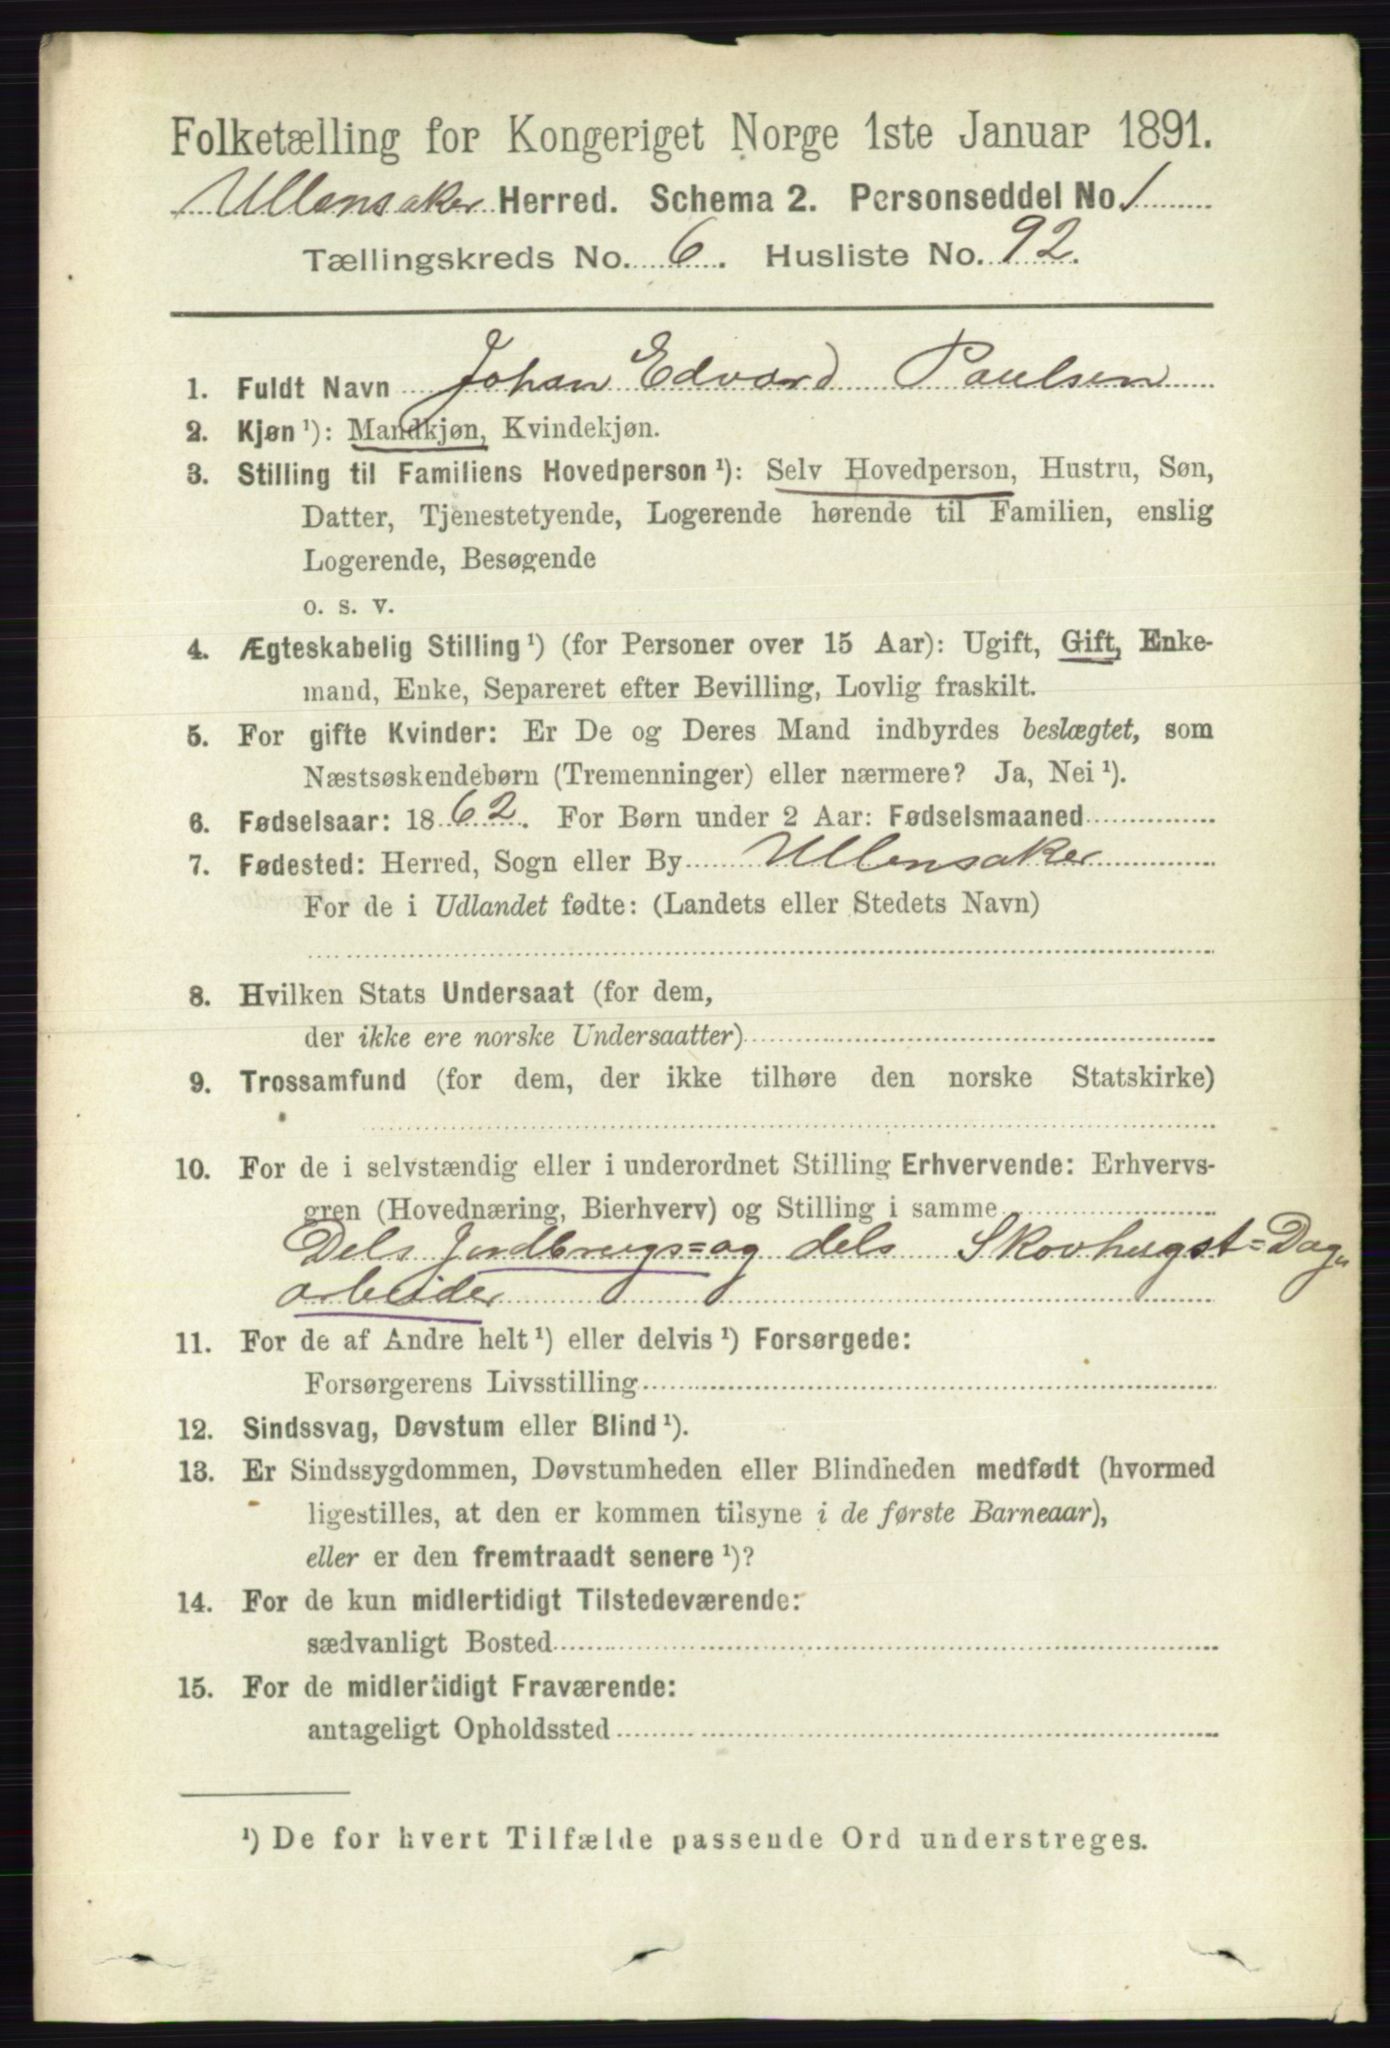 Folketælling for Kongeriget Norge 1ste Januar 1891.
Ullensaker Herred. Schema 2. Personseddel No. 1
Tællingskreds No. 6. Husliste No. 92.
1. Fuldt Navn Johan Edvard Paulsen
2. Kjøn ¹): Mandkjøn, Kvindekjøn.
3. Stilling til Familiens Hovedperson ¹): Selv Hovedperson, Hustru, Søn,
Datter, Tjenestetyende, Logerende hørende til Familien, enslig
Logerende, Besøgende
o. s. v.
4. Ægteskabelig Stilling ¹) (for Personer over 15 Aar): Ugift, Gift, Enke-
mand, Enke, Separeret efter Bevilling, Lovlig fraskilt.
5. For gifte Kvinder: Er De og Deres Mand indbyrdes beslægtet, som
Næstsøskendebørn (Tremenninger) eller nærmere? Ja, Nei ¹).
6. Fødselsaar: 1862. For Børn under 2 Aar: Fødselsmaaned
7. Fødested: Herred, Sogn eller By Ullensaker
For de i Udlandet fødte: (Landets eller Stedets Navn)
8. Hvilken Stats Undersaat (for dem,
der ikke ere norske Undersaatter)
9. Trossamfund (for dem, der ikke tilhøre den norske Statskirke)
10. For de i selvstændig eller i underordnet Stilling Erhvervende: Erhvervs-
gren (Hovednæring, Bierhverv) og Stilling i samme
Dels Jordbrugs= og dels Skovhugst=Dag„
arbeider
11. For de af Andre helt ¹) eller delvis ¹) Forsørgede:
Forsørgerens Livsstilling
12. Sindssvag, Døvstum eller Blind ¹).
13. Er Sindssygdommen, Døvstumheden eller Blindheden medfødt (hvormed
ligestilles, at den er kommen tilsyne i de første Barneaar),
eller er den fremtraadt senere ¹)?
14. For de kun midlertidigt Tilstedeværende:
sædvanligt Bosted
15. For de midlertidigt Fraværende:
antageligt Opholdssted
¹) De for hvert Tilfælde passende Ord understreges.